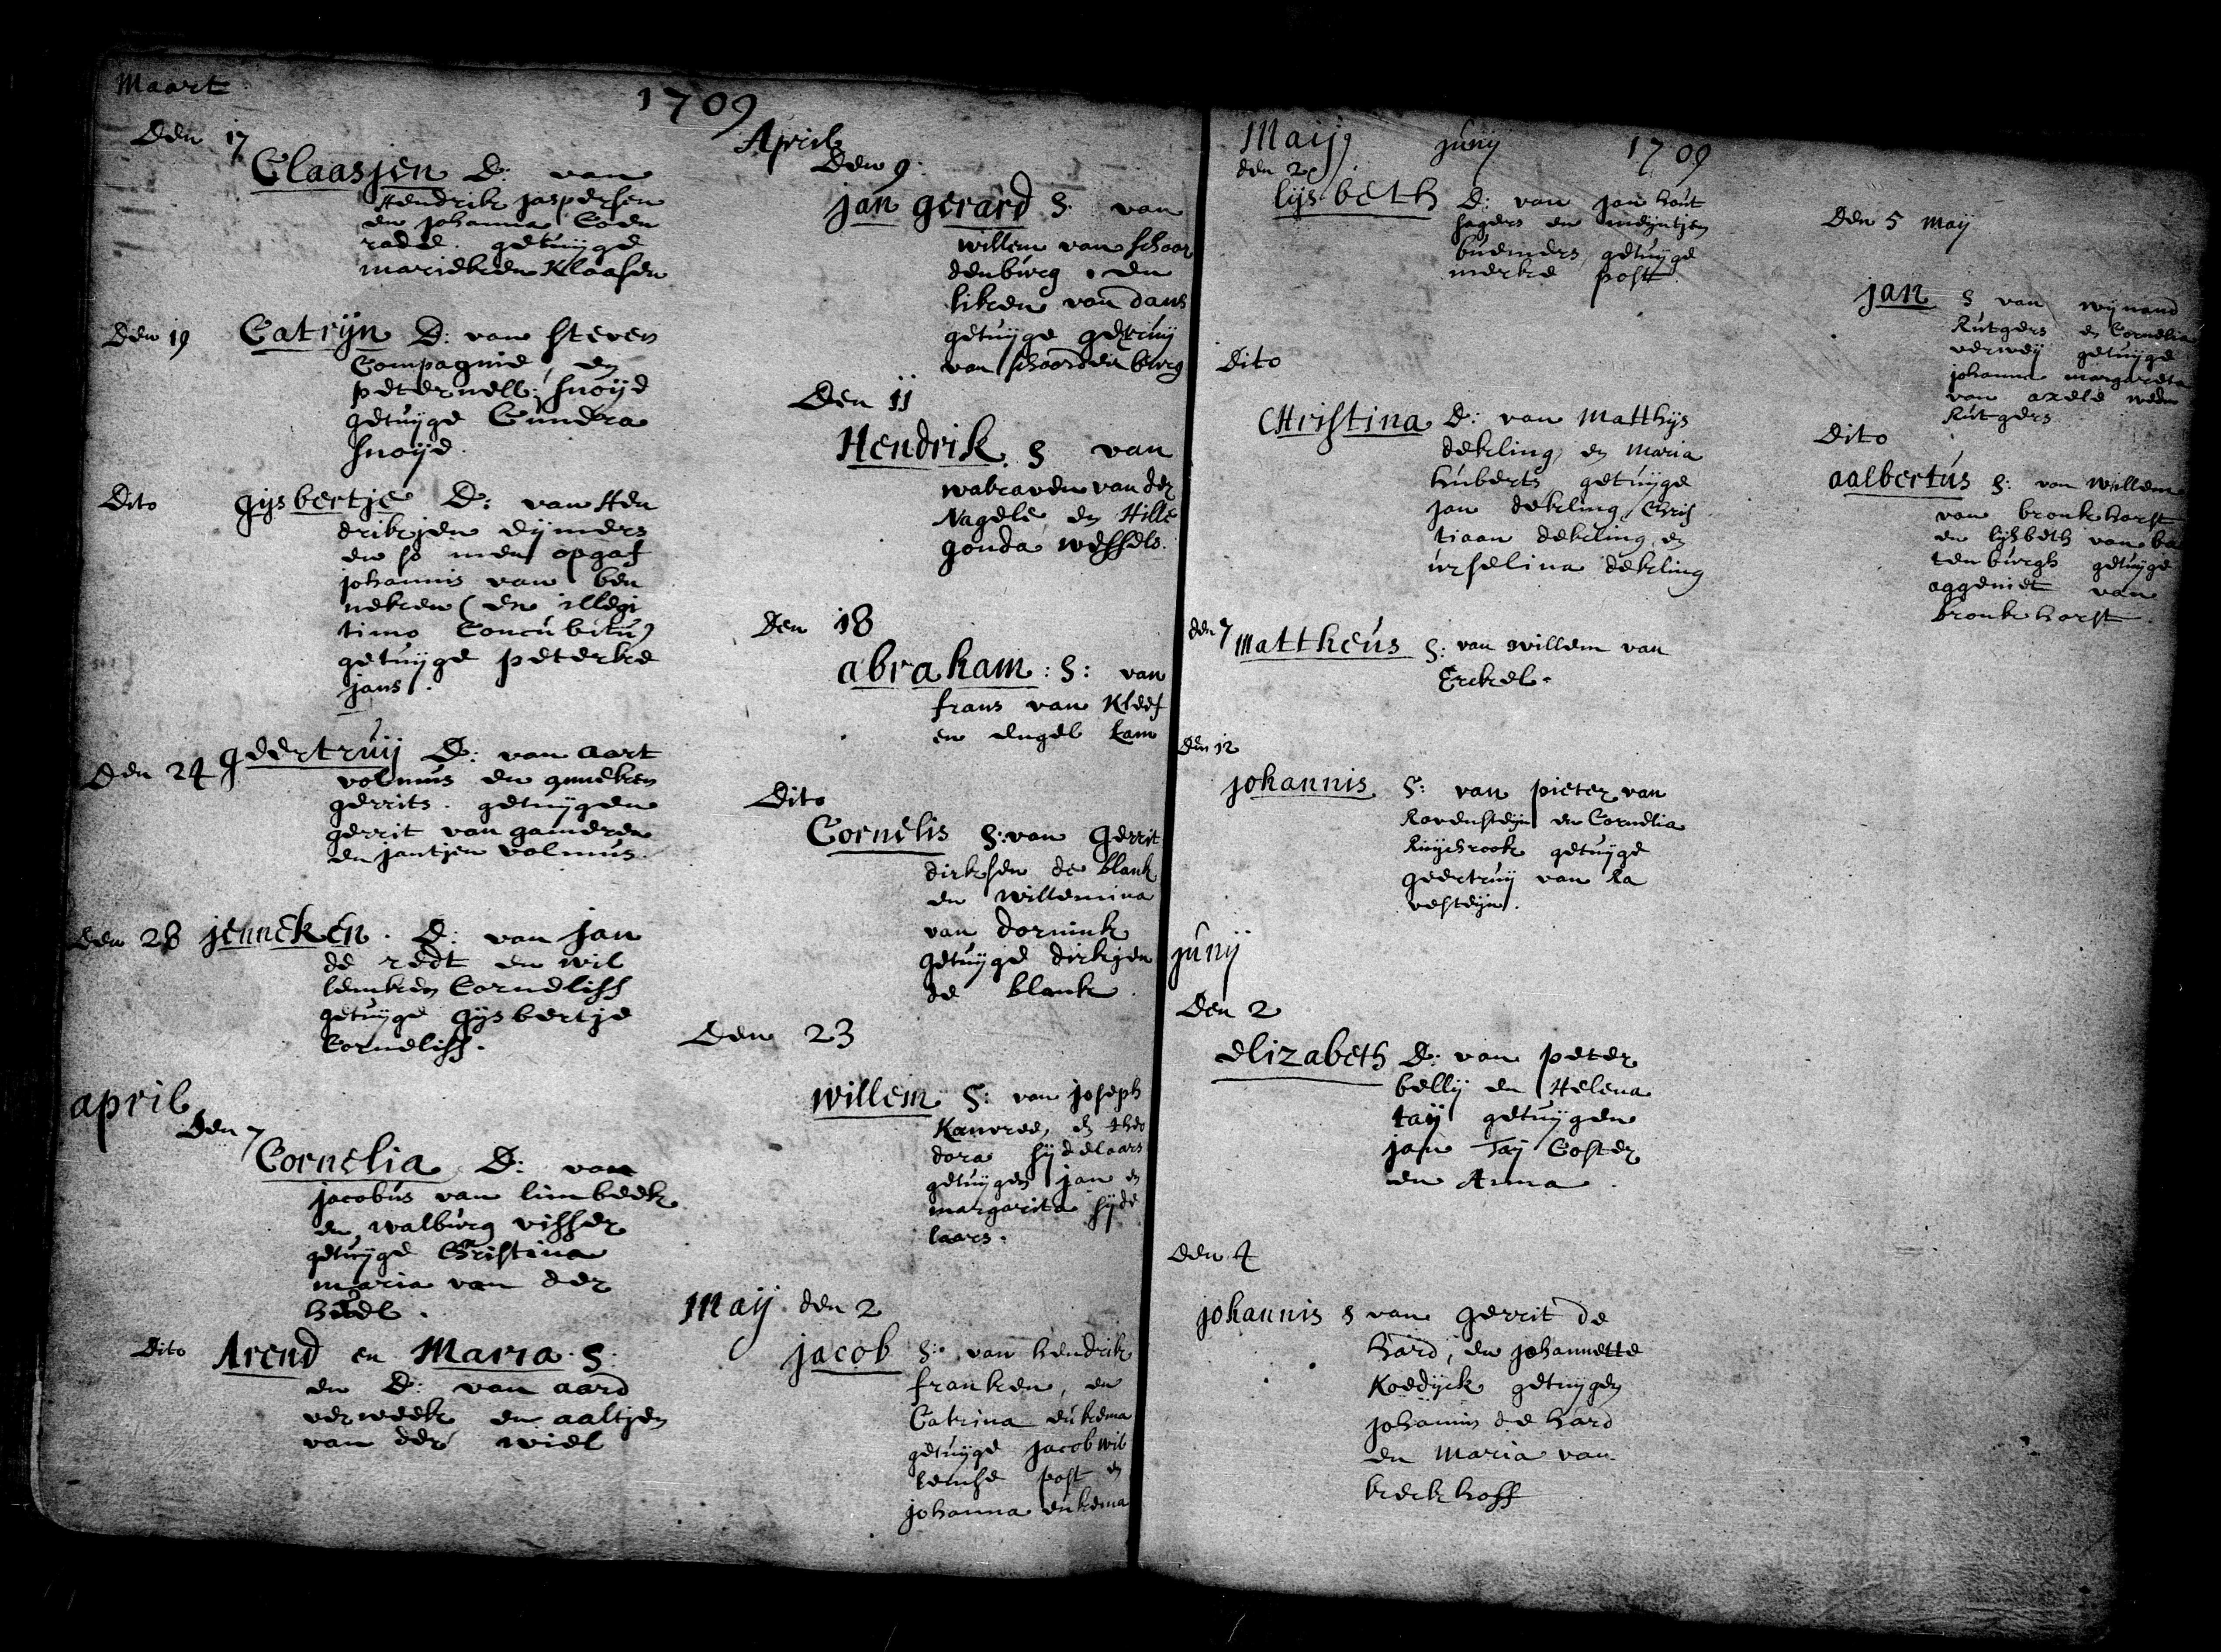 Maart
1709
Den 17
Claasjen D: van
Hendrik jaspersen
en johanna Coen
rade. getuijge
marieken Klaasen
Den 19
Catrijn D: van steven
Compagnie, en
peternell: snoijd
getuijge Gundera
snoijd.
Dito
gijsbertje D: van Hen
drikjen eijmers
en so men opgaf
johannis van ben
neken (en illegi
timo Concubitu)
getuijge peterke
jans.
Den 24
geertruij D: van aart
volmus en anneken
gerrits. getuijgen
gerrit van gameren
en jantjen volmus.
Den 28
jenneken. D: van jan
de reet en wil
lemken Corneliss
getuijge gijsbertje
Corneliss.
april
Den 7
Cornelia D: van
jacobus van limbeek
en walburg visser
getuijge Christina
maria van der
heel.
Dito
Arend en Maria. S:
en D: van aard
verweek en aaltjen
van der wiel
April
Den 9.
jan gerard S. van
willem van schoor
denburg. en
liken van dans
getuijge getruij
van schoordenburg
Den 11
Hendrik. S van
walraven van der
Nagele en Hille
gonda wessels.
Den 18
abraham: S: van
frans van Kleef
en engel kam
Dito
Cornelis S: van Gerrit
dirksen de blank
en willemina
van dornink
getuijge dirkjen
de blank.
Den 23
willem S: van joseph
Kanvree, en theo
dora sijdelaars
getuijgen jan en
margarita sijde
laars.
Maij den 2
jacob S: van hendrik
franken, en
Catrina eukema
getuijge jacob wil
lemse post en
johanna eukema
Maij junij 1709
den 2
lijsbeth D: van jan hout
sagers en meijntjen
buemers, getuijge
merke post.
Dito
CHristina D: van Matthijs
dekling, en Maria
huberts getuijge
jan dekling, Chris
tiaan dekling en
urselina dekling
den 7
Mattheus S: van willem van
Erckel.
Den 12
johannis S: van pieter van
Ravensteijn en Cornelia
Ruijchrook getuijge
geertruij van Ra
vesteijn.
junij
Den 2
elizabeth D: van peter
bellij en Helena
taij getuijgen
jan Taij Coster
en Anna.
Den 4
johannis S van Gerrit de
hard, en johannette
Koedijck getuijgen
johannis de hard
en Maria van
kerkhoff
Den 5 maij
jan S van wijnand
Rutgers en Cornelia
verweij getuijge
johanna margareta
van axele wedu
Rutgers
Dito
aalbertus S: van willem
van bronkhorst
en lijsbeth van ba
tenburgh getuijge
aggeniet van
bronkhorst.